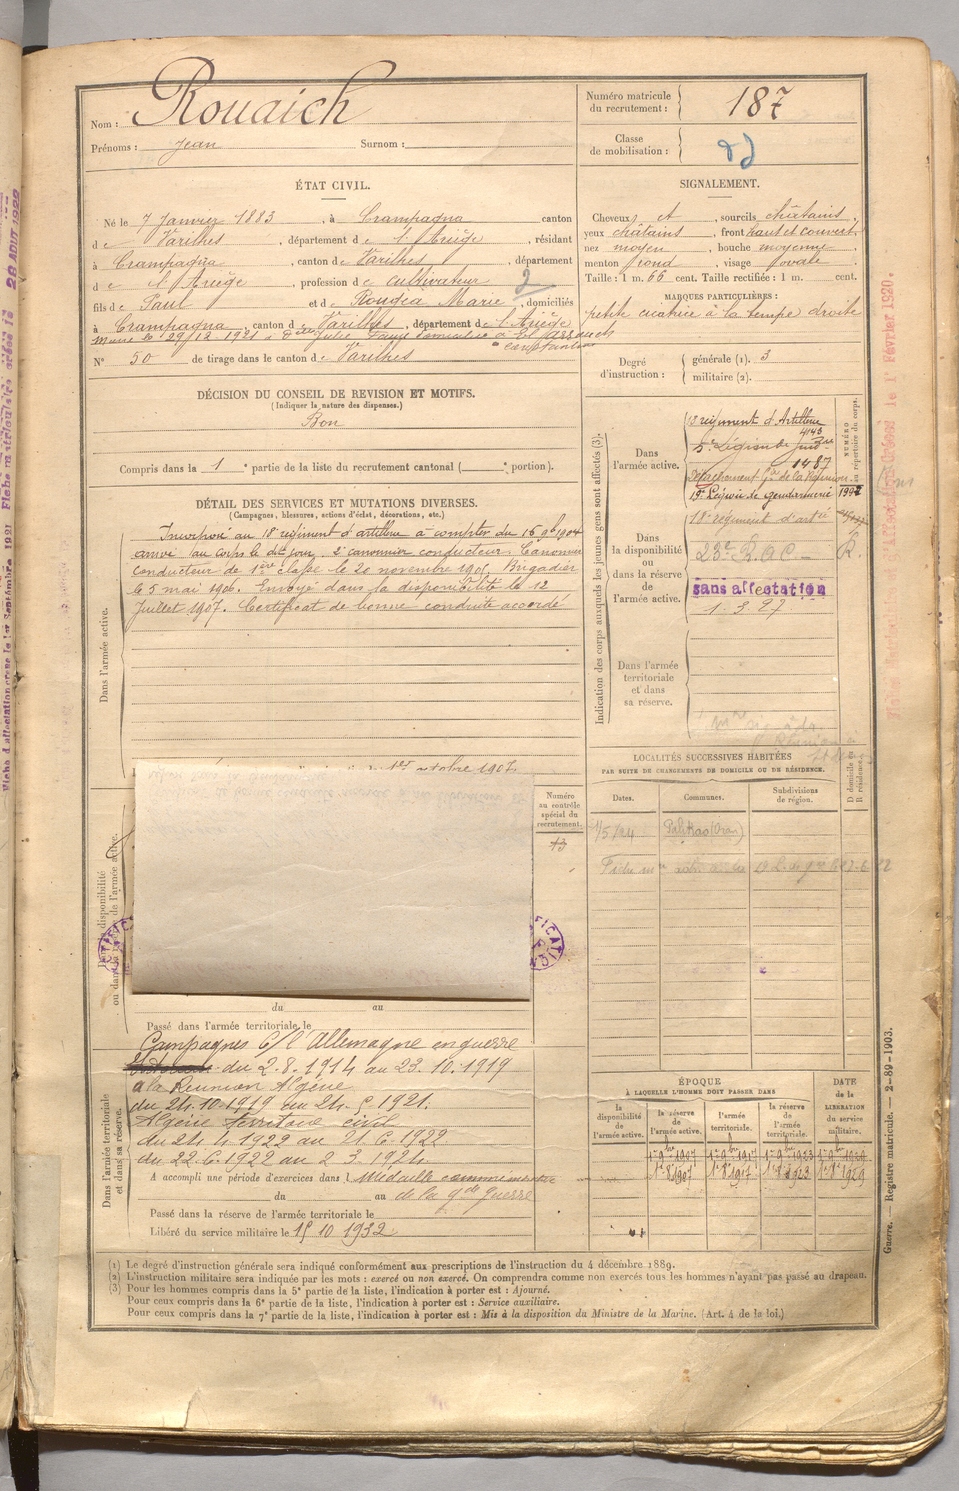 Nom : Rouaich
Prénoms : Jean Surnom :
Numéro matricule du recrutement : 187
Classe de mobilisation :
ÉTAT CIVIL.
Né le 7 Janvier 1883, à Crampagna canton
de Varilhes, département de l'Ariège, résidant
à Crampagna, canton de Varilhes, département
de l'Ariège, profession de cultivateur
fils de Paul et de Marie, domiciliés
à Crampagna, canton de Varilhes, département de l'Ariège
Marié le 29/12-1921 à Dlle Julie domiciliée à El
N° 50 de tirage dans le canton de Varilhes
SIGNALEMENT.
Cheveux et, sourcils châtains,
yeux châtains, front haut et couvert,
nez moyen, bouche moyenne,
menton rond, visage ovale.
Taille : 1 m. 66 cent. Taille rectifiée : 1 m. cent.
MARQUES PARTICULIÈRES :
petite cicatrice à la tempe droite
Degré d'instruction : générale (1). 3
militaire (2).
DÉCISION DU CONSEIL DE REVISION ET MOTIFS.
(Indiquer la nature des dispenses.)
Bon
Compris dans la 1e partie de la liste du recrutement cantonal ( e portion).
DÉTAIL DES SERVICES ET MUTATIONS DIVERSES.
(Campagnes, blessures, actions d'éclat, décorations, etc.)
Dans l'armée active.
Incorporé au 18e régiment d'artillerie à compter du 16 9bre 1904
arrivé au corps le dit jour, 2e canonnier conducteur. Canonnier
conducteur de 1ère classe le 20 novembre 1905. Brigadier
le 5 mai 1906. Envoyé dans la disponibilité le 12
Juillet 1907. Certificat de bonne conduite accordé
1er octobre 1907
Indication des corps auxquels les jeunes gens sont affectés (3).
NUMÉRO au répertoire du corps.
Dans l'armée active.
18 régiment d'Artillerie
4143
Légion de
1487
Détachement de la Réunion
19e Légion de Gendarmerie 1992
Dans la disponibilité ou dans la réserve de l'armée active.
18e régiment d'artie
23e R.A.C.
sans affectation
1.3.27
Dans l'armée territoriale et dans sa réserve.
LOCALITÉS SUCCESSIVES HABITÉES
PAR SUITE DE CHANGEMENTS DE DOMICILE OU DE RÉSIDENCE.
Dates. Communes. Subdivisions de région. D domicile ou R résidence.
1/5/24 Palikao (Oran)
Numéro au contrôle spécial du recrutement.
13
du au
Passé dans l'armée territoriale le
Dans l'armée territoriale et dans sa réserve.
Campagnes C/ l'Allemagne en guerre
du 2.8.1914 au 23.10.1919
à la Réunion Algérie
du 24.10.1919 au 24.5.1921.
Algérie territoire civil
du 24 4 1922 au 21.6.1922
du 22.6.1922 au 2 3.1924
A accompli une période d'exercices dans l Médaille commémorative
du au de la gde Guerre
Passé dans la réserve de l'armée territoriale le
Libéré du service militaire le 15 10 1932
ÉPOQUE
À LAQUELLE L'HOMME DOIT PASSER DANS
la disponibilité de l'armée active.
la réserve de l'armée active.
l'armée territoriale.
la réserve de l'armée territoriale.
DATE de la LIBÉRATION du service militaire.
1er 9bre 1907 1er 9bre 1917 1er 9bre 1923 1er 9bre 1929
1er 8 1907 1er 8 1917 1er 8 1923 1er 8 1929
(1) Le degré d'instruction générale sera indiqué conformément aux prescriptions de l'instruction du 4 décembre 1889.
(2) L'instruction militaire sera indiquée par les mots : exercé ou non exercé. On comprendra comme non exercés tous les hommes n'ayant pas passé au drapeau.
(3) Pour les hommes compris dans la 5e partie de la liste, l'indication à porter est : Ajourné.
Pour ceux compris dans la 6e partie de la liste, l'indication à porter est : Service auxiliaire.
Pour ceux compris dans la 7e partie de la liste, l'indication à porter est : Mis à la disposition du Ministre de la Marine. (Art. 4 de la loi.)
Guerre. — Registre matricule. — 2-89-1903.